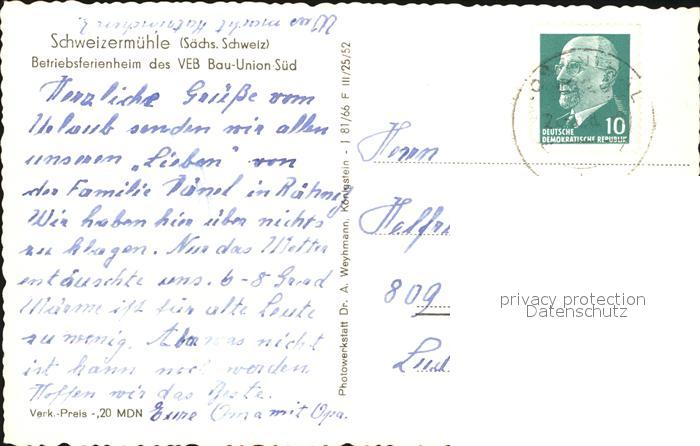 Was macht
Schweizermühle (Sächs. Schweiz)
Betriebsferienheim des VEB Bau-Union-Süd
Herzliche Grüße vom
Urlaub senden wir allen
unseren „Lieben" von
der Familie in
Wir haben hier über nichts
zu klagen. Nur das Wetter
entäuschte uns. 6-8 Grad
Wärme ist für alte Leute
zu wenig. Aber was nicht
ist kann noch werden
Hoffen wir das Beste.
Verk.-Preis -,20 MDN Eure Oma mit Opa.
Photowerkstatt Dr. A. Weyhmann, Königstein - J 81/66 F III/25/52
10
DEUTSCHE
DEMOKRATISCHE REPUBLIK
Herrn
Helfri
809
privacy protection
Datenschutz